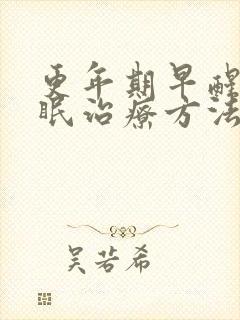 更年期早醒
眠治疗方法
吴若希